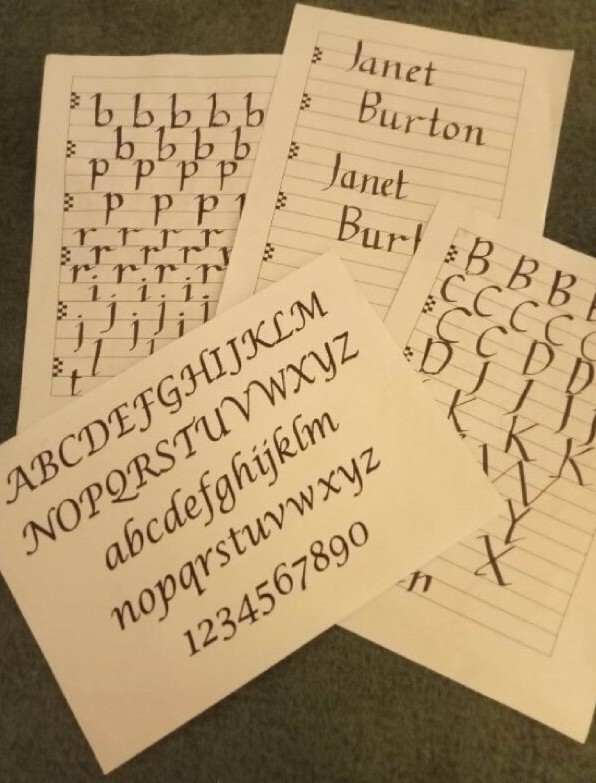 b b b b b
b b b b
p p p p
p p p
r r r r
r r r r
r r r r
i i i
j j j
j j j i
l l
t
Janet
Burton
Janet
Bur
B B B
C C C C
C C C
D D D
J J J
K K K
Y
X
n
ABCDEFGHIJKLM
NOPQRSTUVWXYZ
abcdefghijklm
nopqrstuvwxyz
1234567890